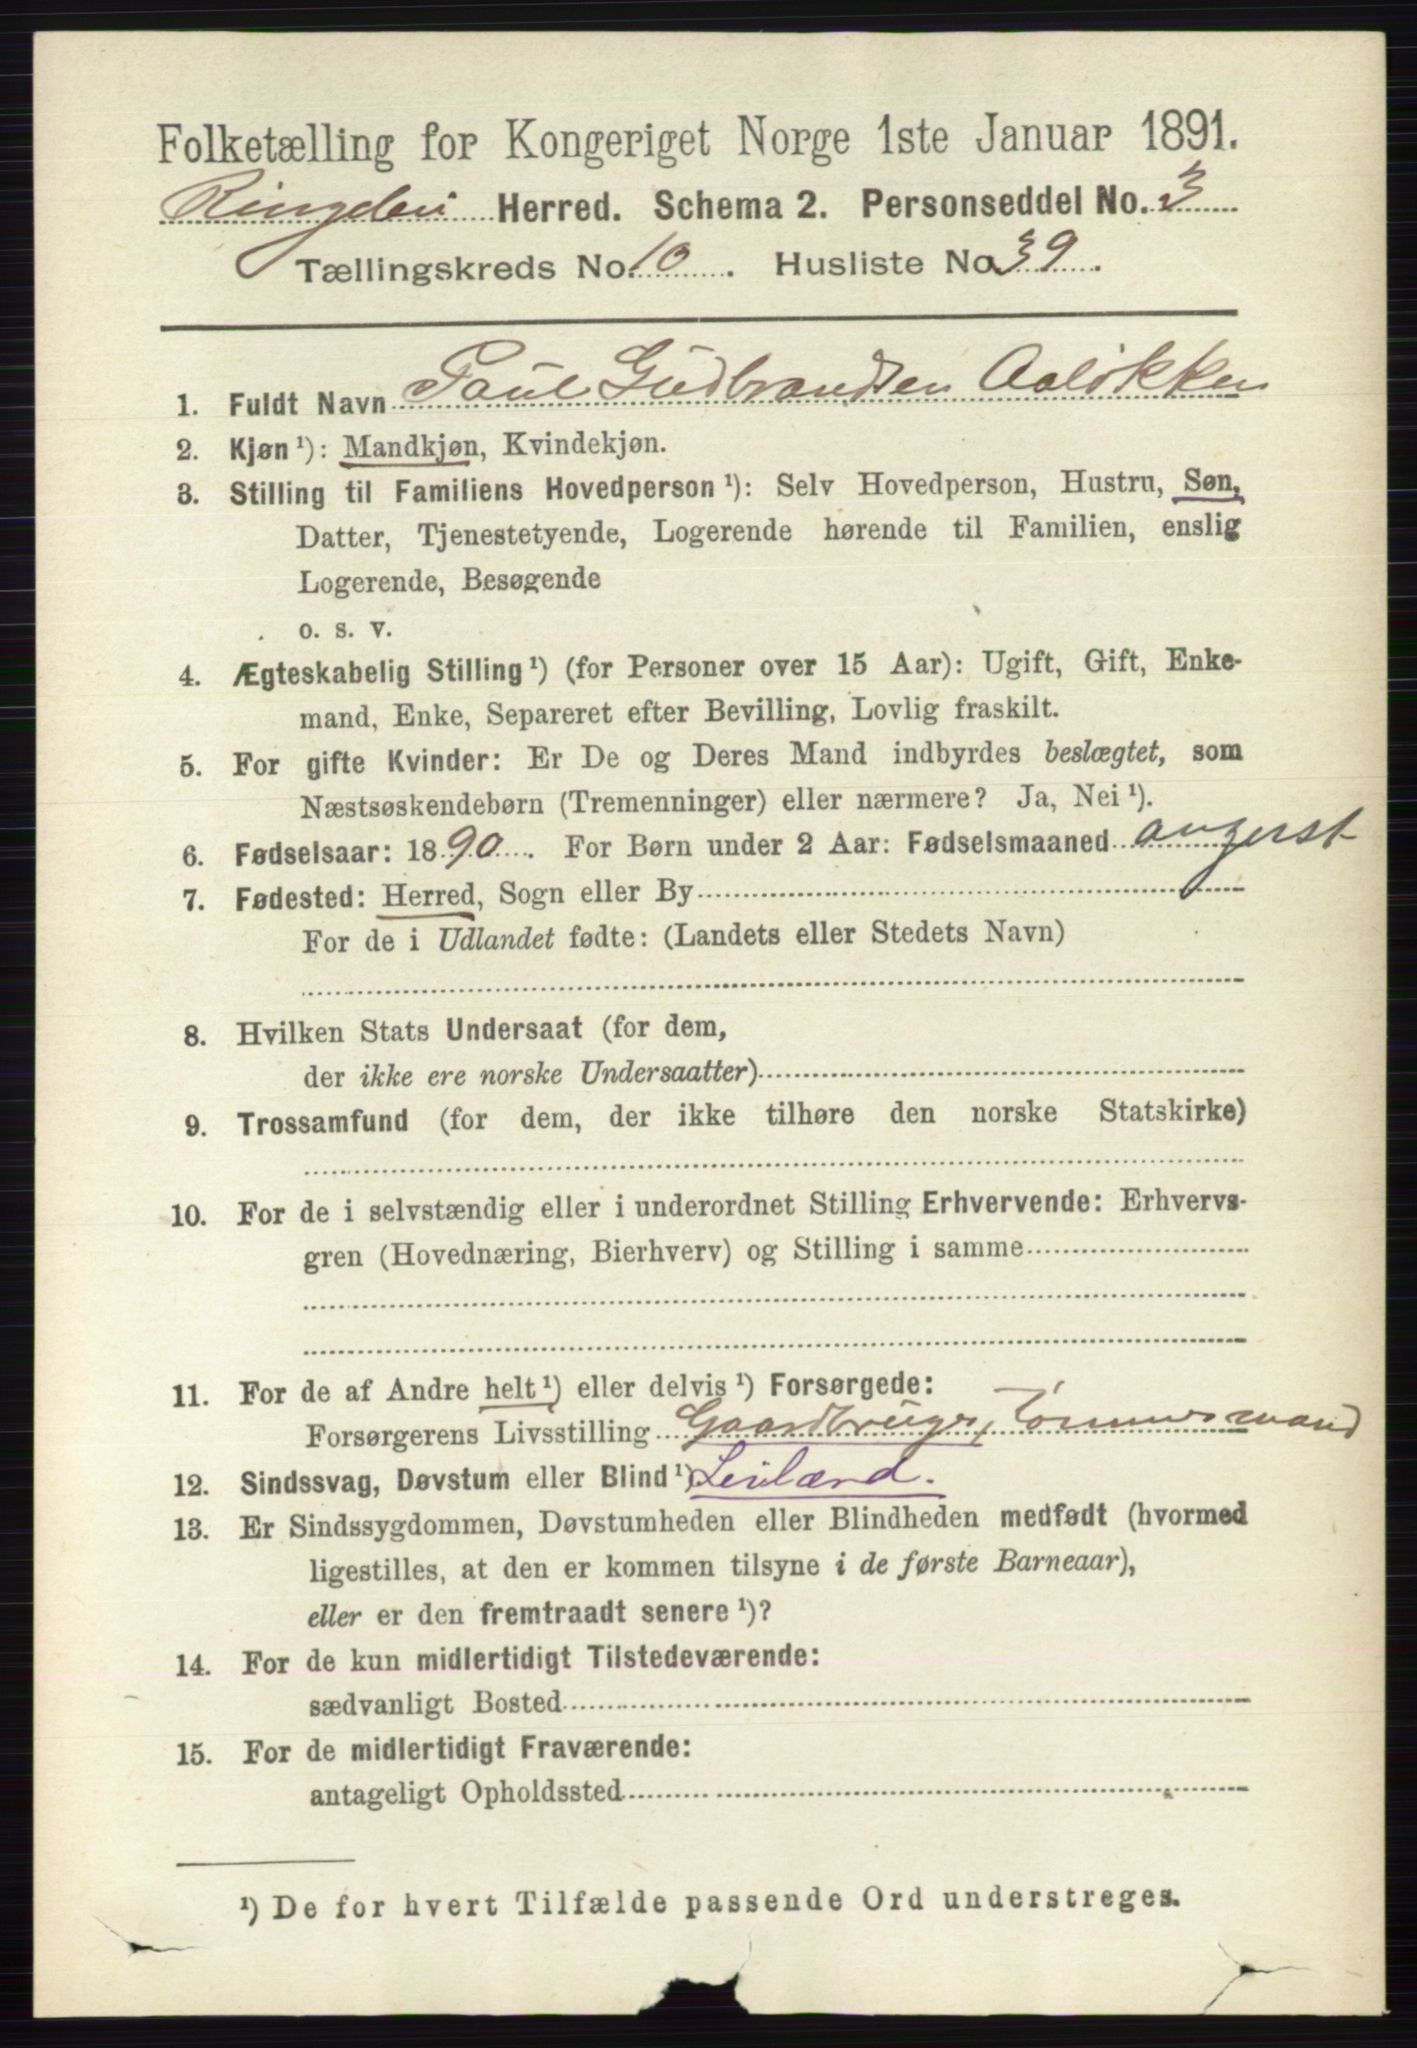 Folketælling for Kongeriget Norge 1ste Januar 1891.
Ringebu Herred. Schema 2. Personseddel No. 3
Tællingskreds No. 10. Husliste No. 39.
1. Fuldt Navn Paul Gudbrandsen Aaløkken
2. Kjøn ¹): Mandkjøn, Kvindekjøn.
3. Stilling til Familiens Hovedperson ¹): Selv Hovedperson, Hustru, Søn,
Datter, Tjenestetyende, Logerende hørende til Familien, enslig
Logerende, Besøgende
o. s. v.
4. Ægteskabelig Stilling ¹) (for Personer over 15 Aar): Ugift, Gift, Enke-
mand, Enke, Separeret efter Bevilling, Lovlig fraskilt.
5. For gifte Kvinder: Er De og Deres Mand indbyrdes beslægtet, som
Næstsøskendebørn (Tremenninger) eller nærmere? Ja, Nei ¹).
6. Fødselsaar: 1890. For Børn under 2 Aar: Fødselsmaaned augerst
7. Fødested: Herred, Sogn eller By
For de i Udlandet fødte: (Landets eller Stedets Navn)
8. Hvilken Stats Undersaat (for dem,
der ikke ere norske Undersaatter)
9. Trossamfund (for dem, der ikke tilhøre den norske Statskirke)
10. For de i selvstændig eller i underordnet Stilling Erhvervende: Erhvervs-
gren (Hovednæring, Bierhverv) og Stilling i samme
11. For de af Andre helt ¹) eller delvis ¹) Forsørgede:
Forsørgerens Livsstilling Gaardbruger, Tømmermand
12. Sindssvag, Døvstum eller Blind ¹)
13. Er Sindssygdommen, Døvstumheden eller Blindheden medfødt (hvormed
ligestilles, at den er kommen tilsyne i de første Barneaar),
eller er den fremtraadt senere ¹)?
14. For de kun midlertidigt Tilstedeværende:
sædvanligt Bosted
15. For de midlertidigt Fraværende:
antageligt Opholdssted
¹) De for hvert Tilfælde passende Ord understreges.